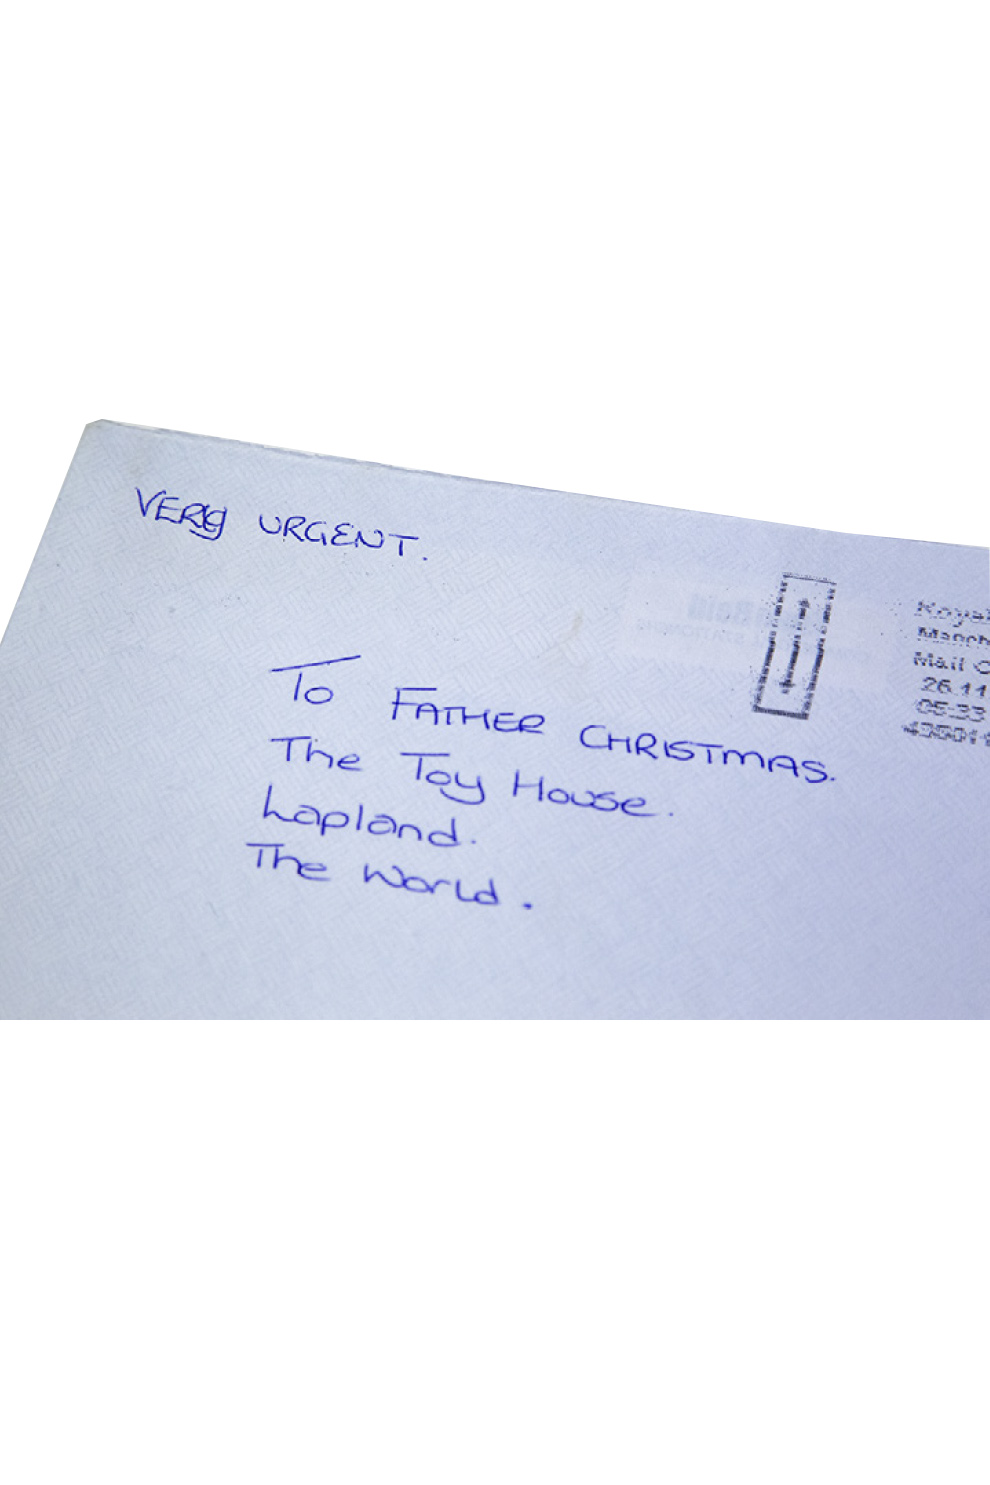 VERY URGENT.
To FATHER CHRISTMAS.
The Toy House.
Lapland.
The World.
Mail
26.11
05:33